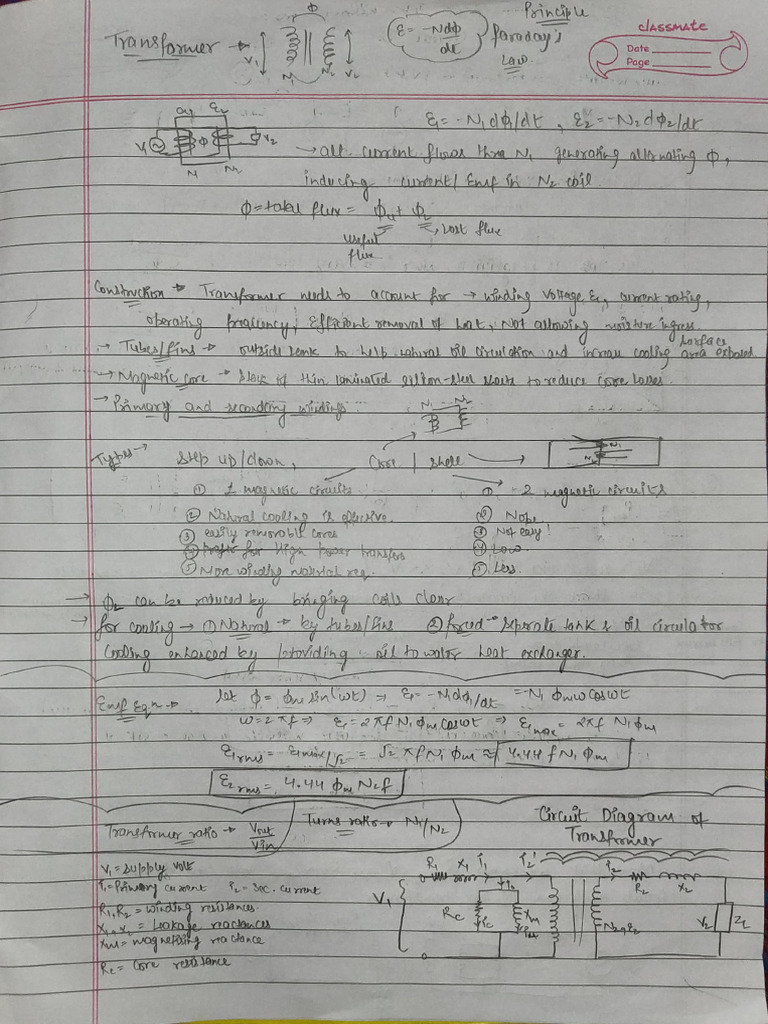 Principle
classmate
Date
Page
Transformer → V1 N1 φ N2 V2
ε = -Ndφ/dt
faraday's Law
V1 φ ε2 V2 N1 N2
ε1 = -N1dφ/dt , ε2 = -N2dφ2/dt
→ current flows thru N1 generating alternating φ,
inducing current/ Emf in N2 coil
φ = total flux = φu + φL
useful flux
Lost flux
Construction → Transformer needs to account for → winding voltage current rating,
operating frequency, Efficient removal of heat, Not allowing moisture ingress.
→ Tubes/fins → outside tank to help natural oil circulation and increase cooling surface area exposed
→ Magnetic core → stack of thin laminated silicon-steel to reduce core losses
→ Primary and secondary windings
N1 N2
Types → Step up/down, Core / Shell
N1
N2
① 1 magnetic circuits
① 2 magnetic circuits
② Natural cooling is effective.
② Nope
③ easily removable cores
③ Not easy!
④ for High power transfers
④ Low
⑤ More winding material req.
⑤ Less.
→ φL can be reduced by bringing coils closer
→ for cooling → ① Natural → by tubes/fins ② forced → seperate tank & oil circulator
Cooling enhanced by providing oil to water heat exchanger.
Emf Eqn → let φ = φm sin(ωt) ⇒ ε1 = -N1dφ1/dt = -N1 φmωcosωt
ω=2πf ⇒ ε1 = 2πf N1 φmcosωt ⇒ ε1max = 2πf N1φm
ε1rms = ε1max/√2 = √2 πfN1 φm ≈ 4.44 fN1 φm
ε2rms = 4.44 φm N2f
Transformer ratio → Vout/Vin
Turns ratio → N1/N2
Circuit Diagram of
Transformer
V1 = supply volt
i1 = Primary current i2 = sec. current
R1,R2 = winding resistances
x1, x2 = Leakage reactances
xm = magnetising reactance
Rc = core resistance
R1 x1 i1 i2' i2 R2 x2
V1 Rc ic xm im V2 ZL